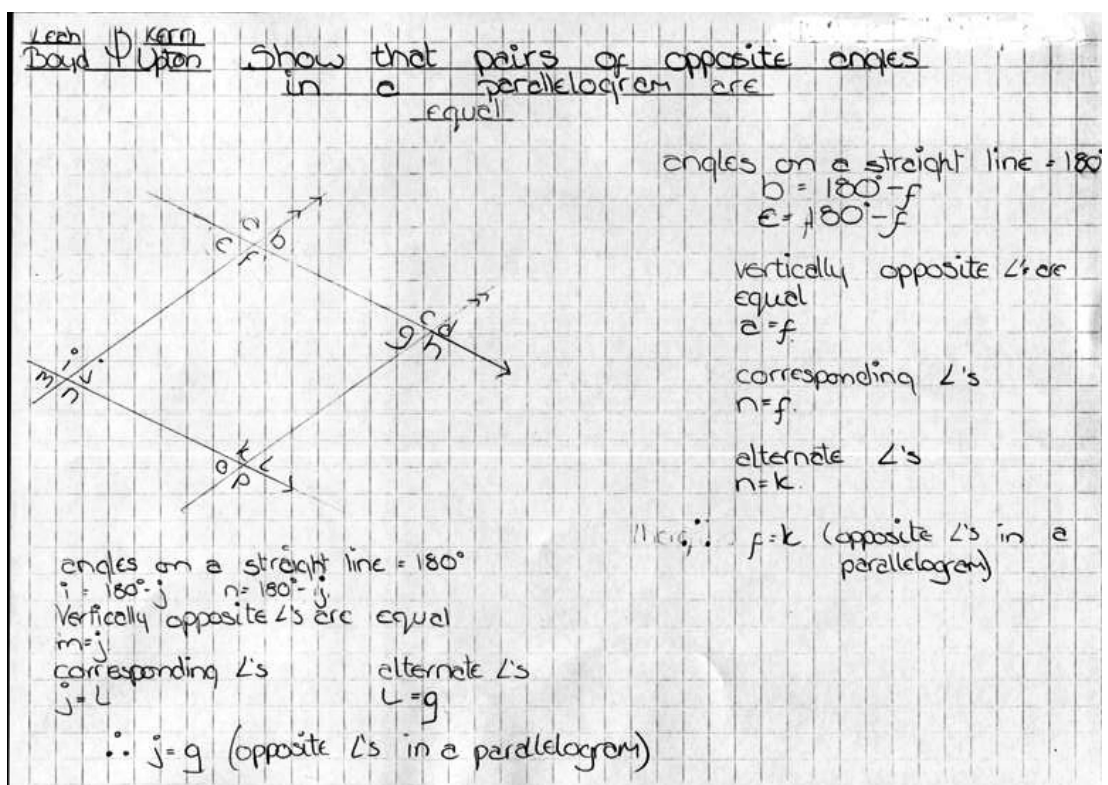 Leah Kerri
Boyd & Upton
Show that pairs of opposite angles
in a parallelogram are
equal
angles on a straight line = 180°
b = 180° - f
e = 180° - f
vertically opposite ∠'s are
equal
a = f.
corresponding ∠'s
n = f.
alternate ∠'s
n = k.
∴ f = k (opposite ∠'s in a
parallelogram)
a
e b
f
c
g d
h
i
m j
n
k
o L
p
angles on a straight line = 180°
i = 180° - j n = 180° - j.
Vertically opposite ∠'s are equal
m = j
corresponding ∠'s alternate ∠'s
j = L L = g
∴ j = g (opposite ∠'s in a parallelogram)